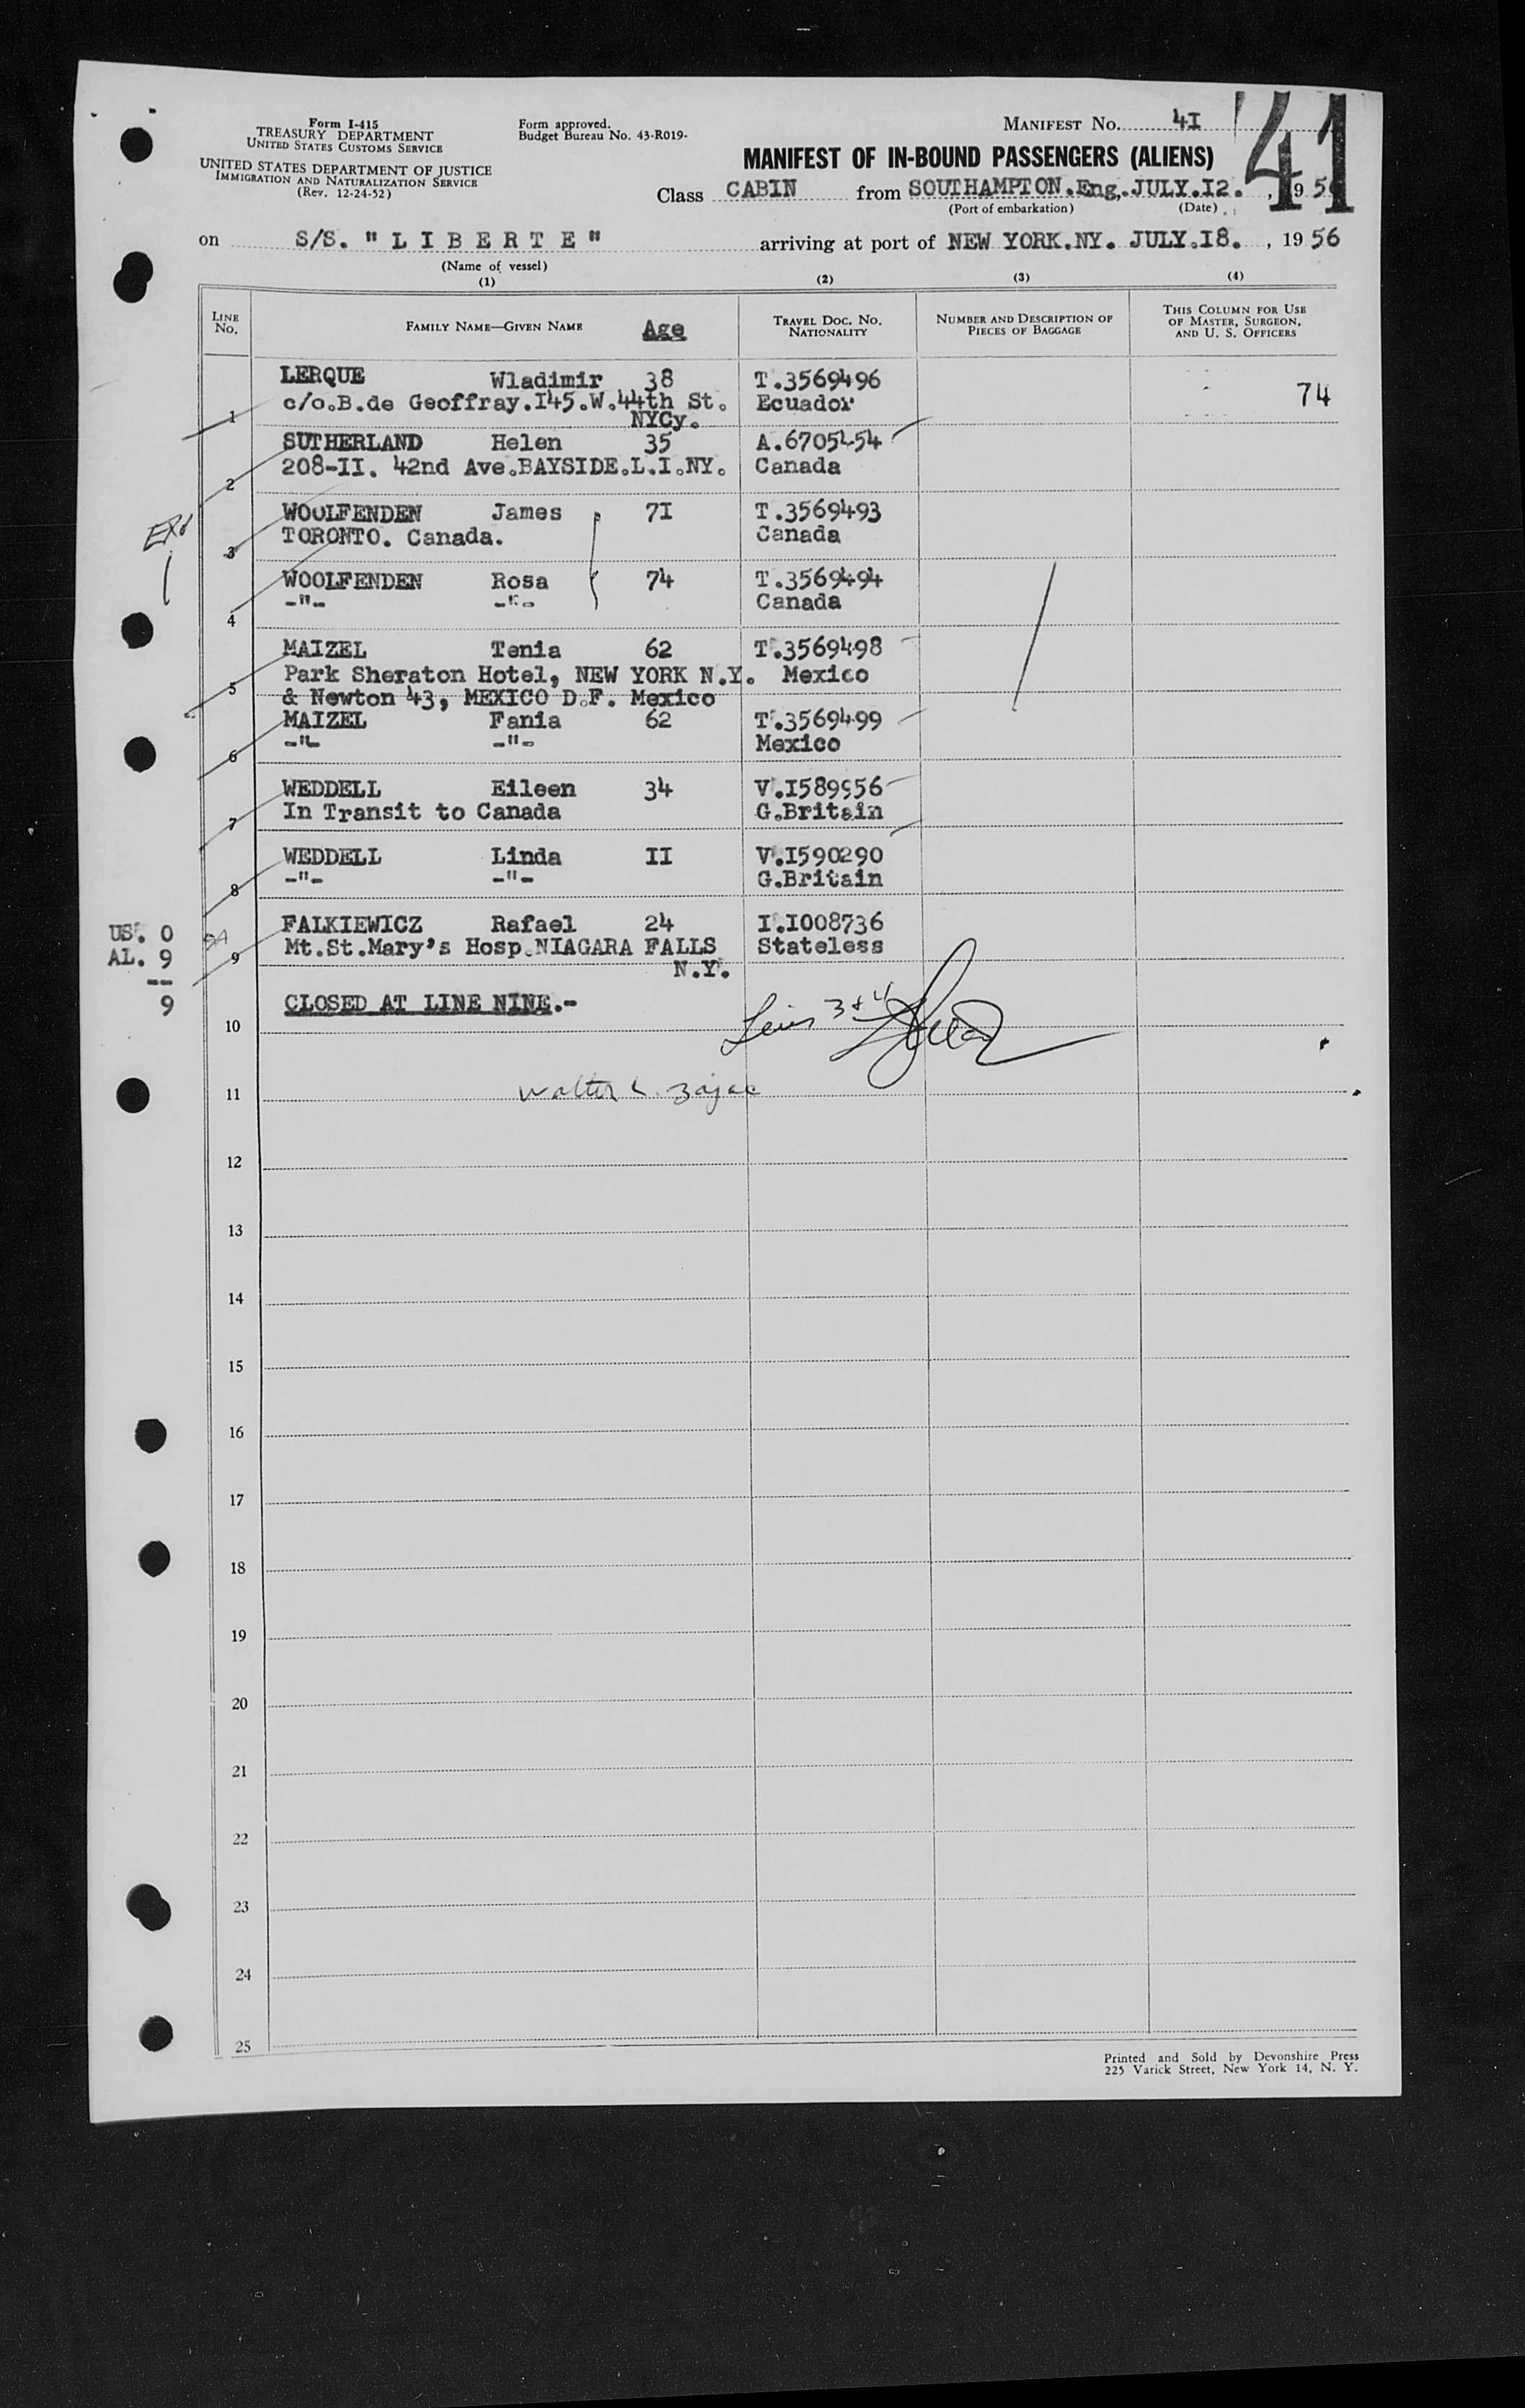 Form I-415
TREASURY DEPARTMENT
UNITED STATES CUSTOMS SERVICE
UNITED STATES DEPARTMENT OF JUSTICE
IMMIGRATION AND NATURALIZATION SERVICE
(Rev. 12-24-52)
Form approved.
Budget Bureau No. 43-R019-
MANIFEST No. 4I
41
MANIFEST OF IN-BOUND PASSENGERS (ALIENS)
Class CABIN from SOUTHAMPTON.Eng,.JULY.I2. , 19 56
(Port of embarkation) (Date)
on S/S. " L I B E R T E " arriving at port of NEW YORK.NY. JULY.I8. , 19 56
(Name of vessel)
(1) (2) (3) (4)
LINE No. FAMILY NAME—GIVEN NAME Age TRAVEL DOC. NO. NATIONALITY NUMBER AND DESCRIPTION OF PIECES OF BAGGAGE THIS COLUMN FOR USE OF MASTER, SURGEON, AND U. S. OFFICERS
LERQUE Wladimir 38 T.3569496
1 c/o.B.de Geoffray.I45.W.44th St. Ecuador 74
NYCy.
SUTHERLAND Helen 35 A.6705454
2 208-II. 42nd Ave.BAYSIDE.L.I.NY. Canada
WOOLFENDEN James 7I T.3569493
3 TORONTO. Canada. Canada
WOOLFENDEN Rosa 74 T.3569494
4 -"- -"- Canada
MAIZEL Tenia 62 T.3569498
5 Park Sheraton Hotel, NEW YORK N.Y. Mexico
& Newton 43, MEXICO D.F. Mexico
MAIZEL Fania 62 T.3569499
6 -"- -"- Mexico
WEDDELL Eileen 34 V.I589956
7 In Transit to Canada G.Britain
WEDDELL Linda II V.I590290
8 -"- -"- G.Britain
US. 0 FALKIEWICZ Rafael 24 I.I008736
AL. 9 9 Mt.St.Mary's Hosp.NIAGARA FALLS Stateless
N.Y.
--
9 CLOSED AT LINE NINE.-
3 + 4
10
11 Walter L. Zajac
12
13
14
15
16
17
18
19
20
21
22
23
24
25
Printed and Sold by Devonshire Press
225 Varick Street, New York 14, N. Y.